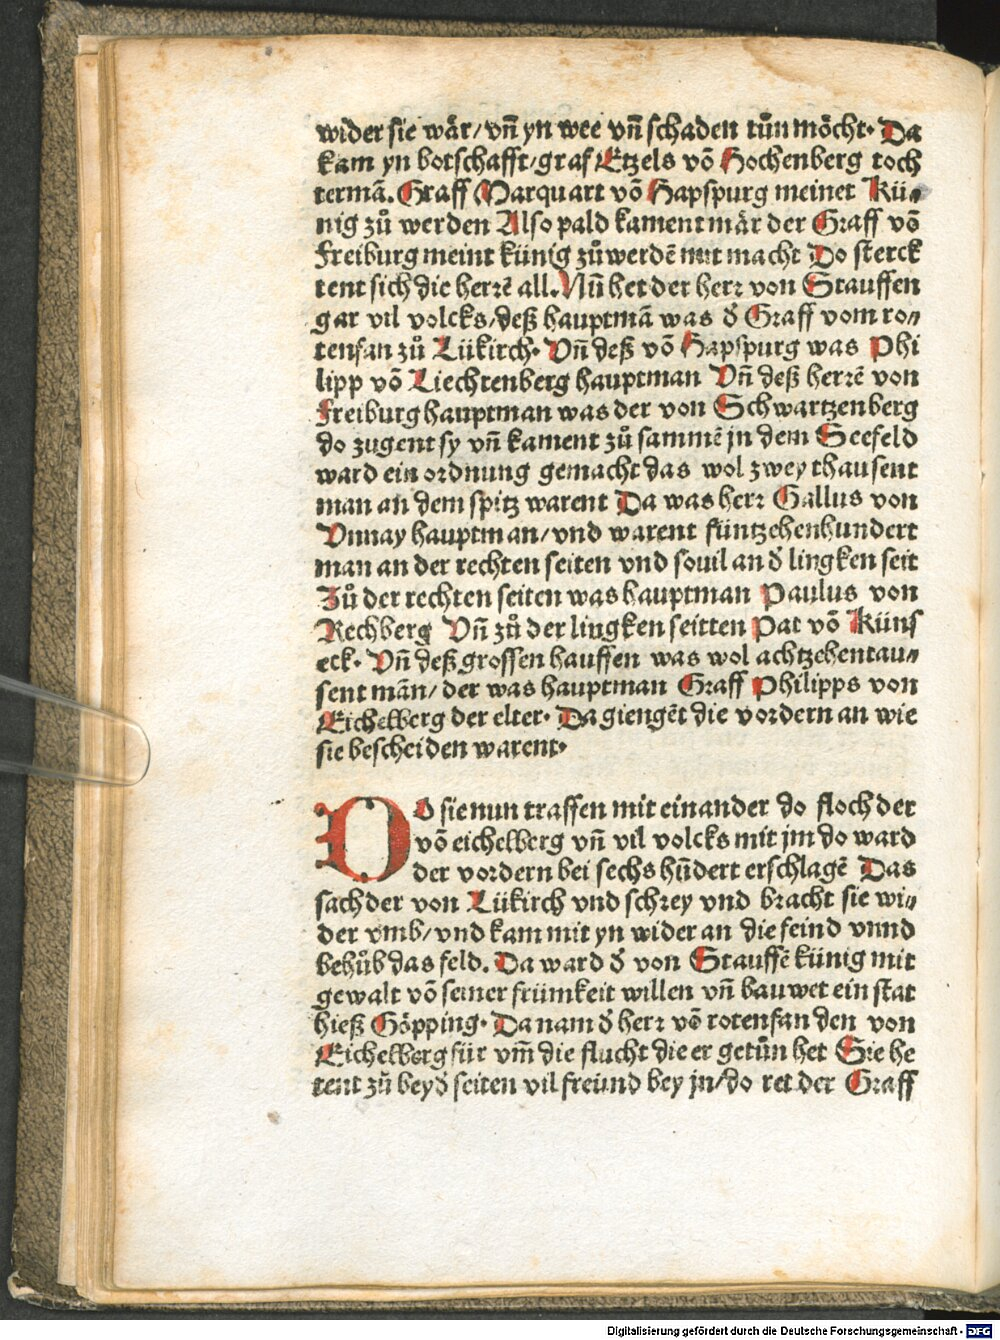 wider sie wär/ vñ yn wee vñ schaden tůn möcht· Da
kam yn botschafft/ graf Etzels võ Hochenberg toch
termã. Graff Marquart võ Hapspurg meinet Kü⸗
nig zů werden Also pald kament mär der Graff võ
Freiburg meint künig zůwerdẽ mit macht Do sterck
tent sich die herrẽ all. Nũ het der herr von Stauffen
gar vil volcks/ deß hauptmã was ď Graff vom ro⸗
tenfan zů Lükirch· Vñ deß võ Hapspurg was Phi
lipp võ Liechtenberg hauptman Vñ deß herrẽ von
Freiburg hauptman was der von Schwartzenberg
do zugent sy vñ kament zů sammẽ jn dem Seefeld
ward ein ordnung gemacht das wol zwey thausent
man an dem spitz warent Da was herr Gallus von
Vnnay hauptman/ vnd warent füntzehenhundert
man an der rechten seiten vnd souil an ď lingken seit
Zů der rechten seiten was hauptman Paulus von
Rechberg Vñ zů der lingken seitten Pat võ Küns
eck· Vñ deß grossen hauffen was wol achtzehentau⸗
sent mãn/ der was hauptman Graff Philipps von
Eichelberg der elter· Da giengẽt die vordern an wie
sie bescheiden warent·
DO sie nun traffen mit einander do floch der
võ eichelberg vñ vil volcks mit jm do ward
der vordern bei sechs hũdert erschlagẽ Das
sach der von Lükirch vnd schrey vnd bracht sie wi⸗
der vmb/ vnd kam mit yn wider an die feind vnnd
behůb das feld. Da ward ď von Stauffẽ künig mit
gewalt võ seiner frümkeit willen vñ bauwet ein stat
hieß Göpping· Da nam ď herr võ rotenfan den von
Eichelberg für vm̃ die flucht die er getůn het Sie he
tent zů beyď seiten vil freünd bey jn/ do ret der Graff
Digitalisierung gefördert durch die Deutsche Forschungsgemeinschaft - DFG